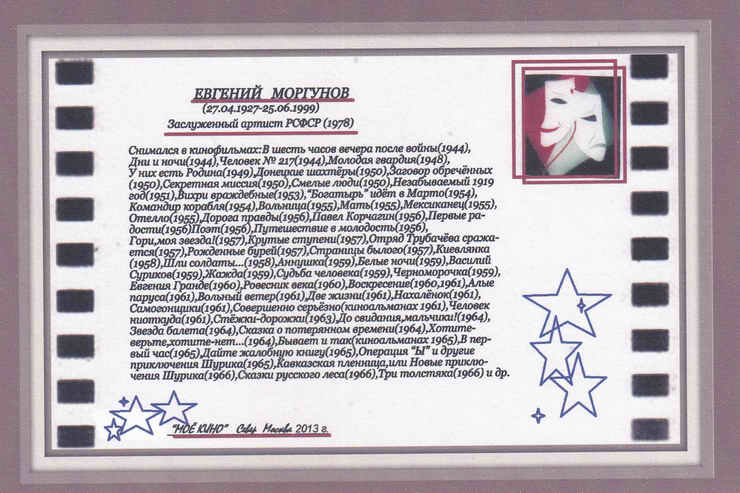 ЕВГЕНИЙ МОРГУНОВ
(27.04.1927-25.06.1999)
Заслуженный артист РСФСР (1978)
Снимался в кинофильмах:В шесть часов вечера после войны(1944),
Дни и ночи(1944),Человек № 217(1944),Молодая гвардия(1948),
У них есть Родина(1949),Донецкие шахтёры(1950),Заговор обречённых
(1950),Секретная миссия(1950),Смелые люди(1950),Незабываемый 1919
год(1951),Вихри враждебные(1953),"Богатырь" идёт в Марто(1954),
Командир корабля(1954),Вольница(1955),Мать(1955),Мексиканец(1955),
Отелло(1955),Дорога правды(1956),Павел Корчагин(1956),Первые ра-
дости(1956)Поэт(1956),Путешествие в молодость(1956),
Гори,моя звезда!(1957),Крутые ступени(1957),Отряд Трубачёва сража-
ется(1957),Рожденные бурей(1957),Страницы былого(1957),Киевлянка
(1958),Шли солдаты...(1958),Аннушка(1959),Белые ночи(1959),Василий
Суриков(1959),Жажда(1959),Судьба человека(1959),Черноморочка(1959),
Евгения Гранде(1960),Ровесник века(1960),Воскресение(1960,1961),Алые
паруса(1961),Вольный ветер(1961),Две жизни(1961),Нахалёнок(1961),
Самогонщики(1961),Совершенно серьёзно(киноальманах 1961),Человек
ниоткуда(1961),Стёжки-дорожки(1963),До свидания,мальчики!(1964),
Звезда балета(1964),Сказка о потерянном времени(1964),Хотите-
верьте,хотите-нет...(1964),Бывает и так(киноальманах 1965),В пер-
вый час(1965),Дайте жалобную книгу(1965),Операция "Ы" и другие
приключения Шурика(1965),Кавказская пленница,или Новые приклю-
чения Шурика(1966),Сказки русского леса(1966),Три толстяка(1966) и др.
"МОЁ КИНО" Москва 2013 г.